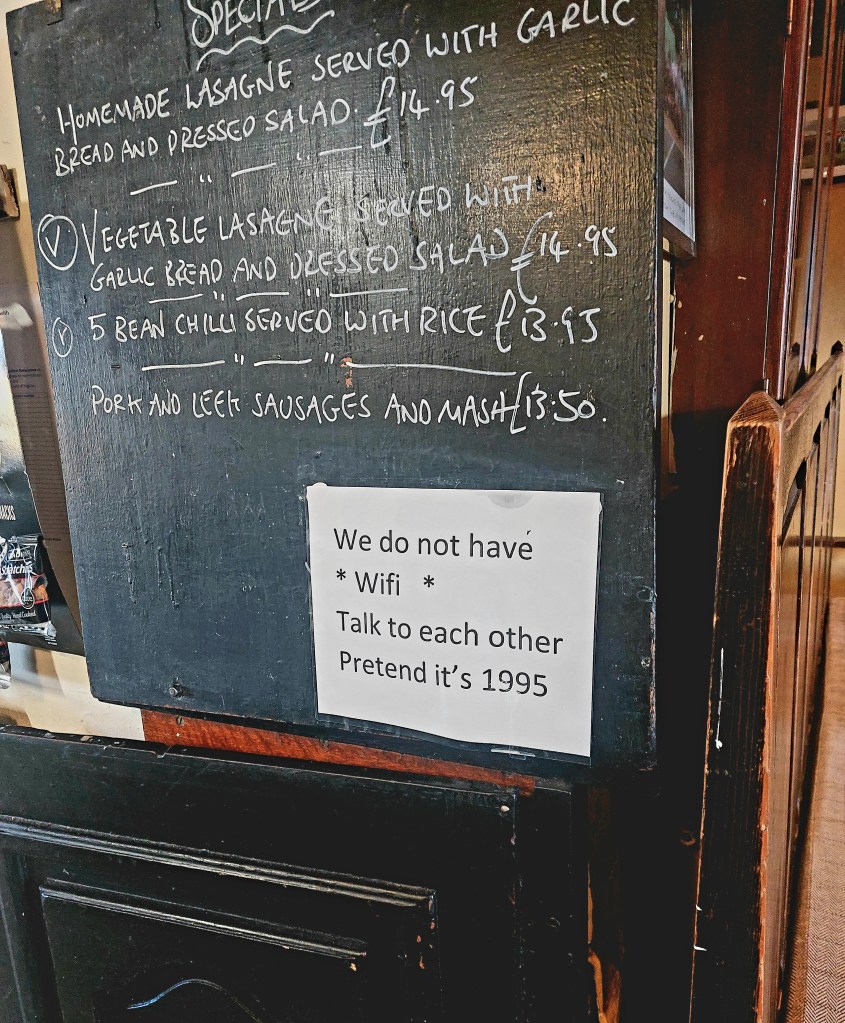 SPECIALS
HOMEMADE LASAGNE SERVED WITH GARLIC
BREAD AND DRESSED SALAD. £14.95
— " — " —
(V) VEGETABLE LASAGNE SERVED WITH
GARLIC BREAD AND DRESSED SALAD £14.95
— " — " —
(V) 5 BEAN CHILLI SERVED WITH RICE £13.95
— " — " —
PORK AND LEEK SAUSAGES AND MASH £13.50.
We do not have
* Wifi *
Talk to each other
Pretend it's 1995